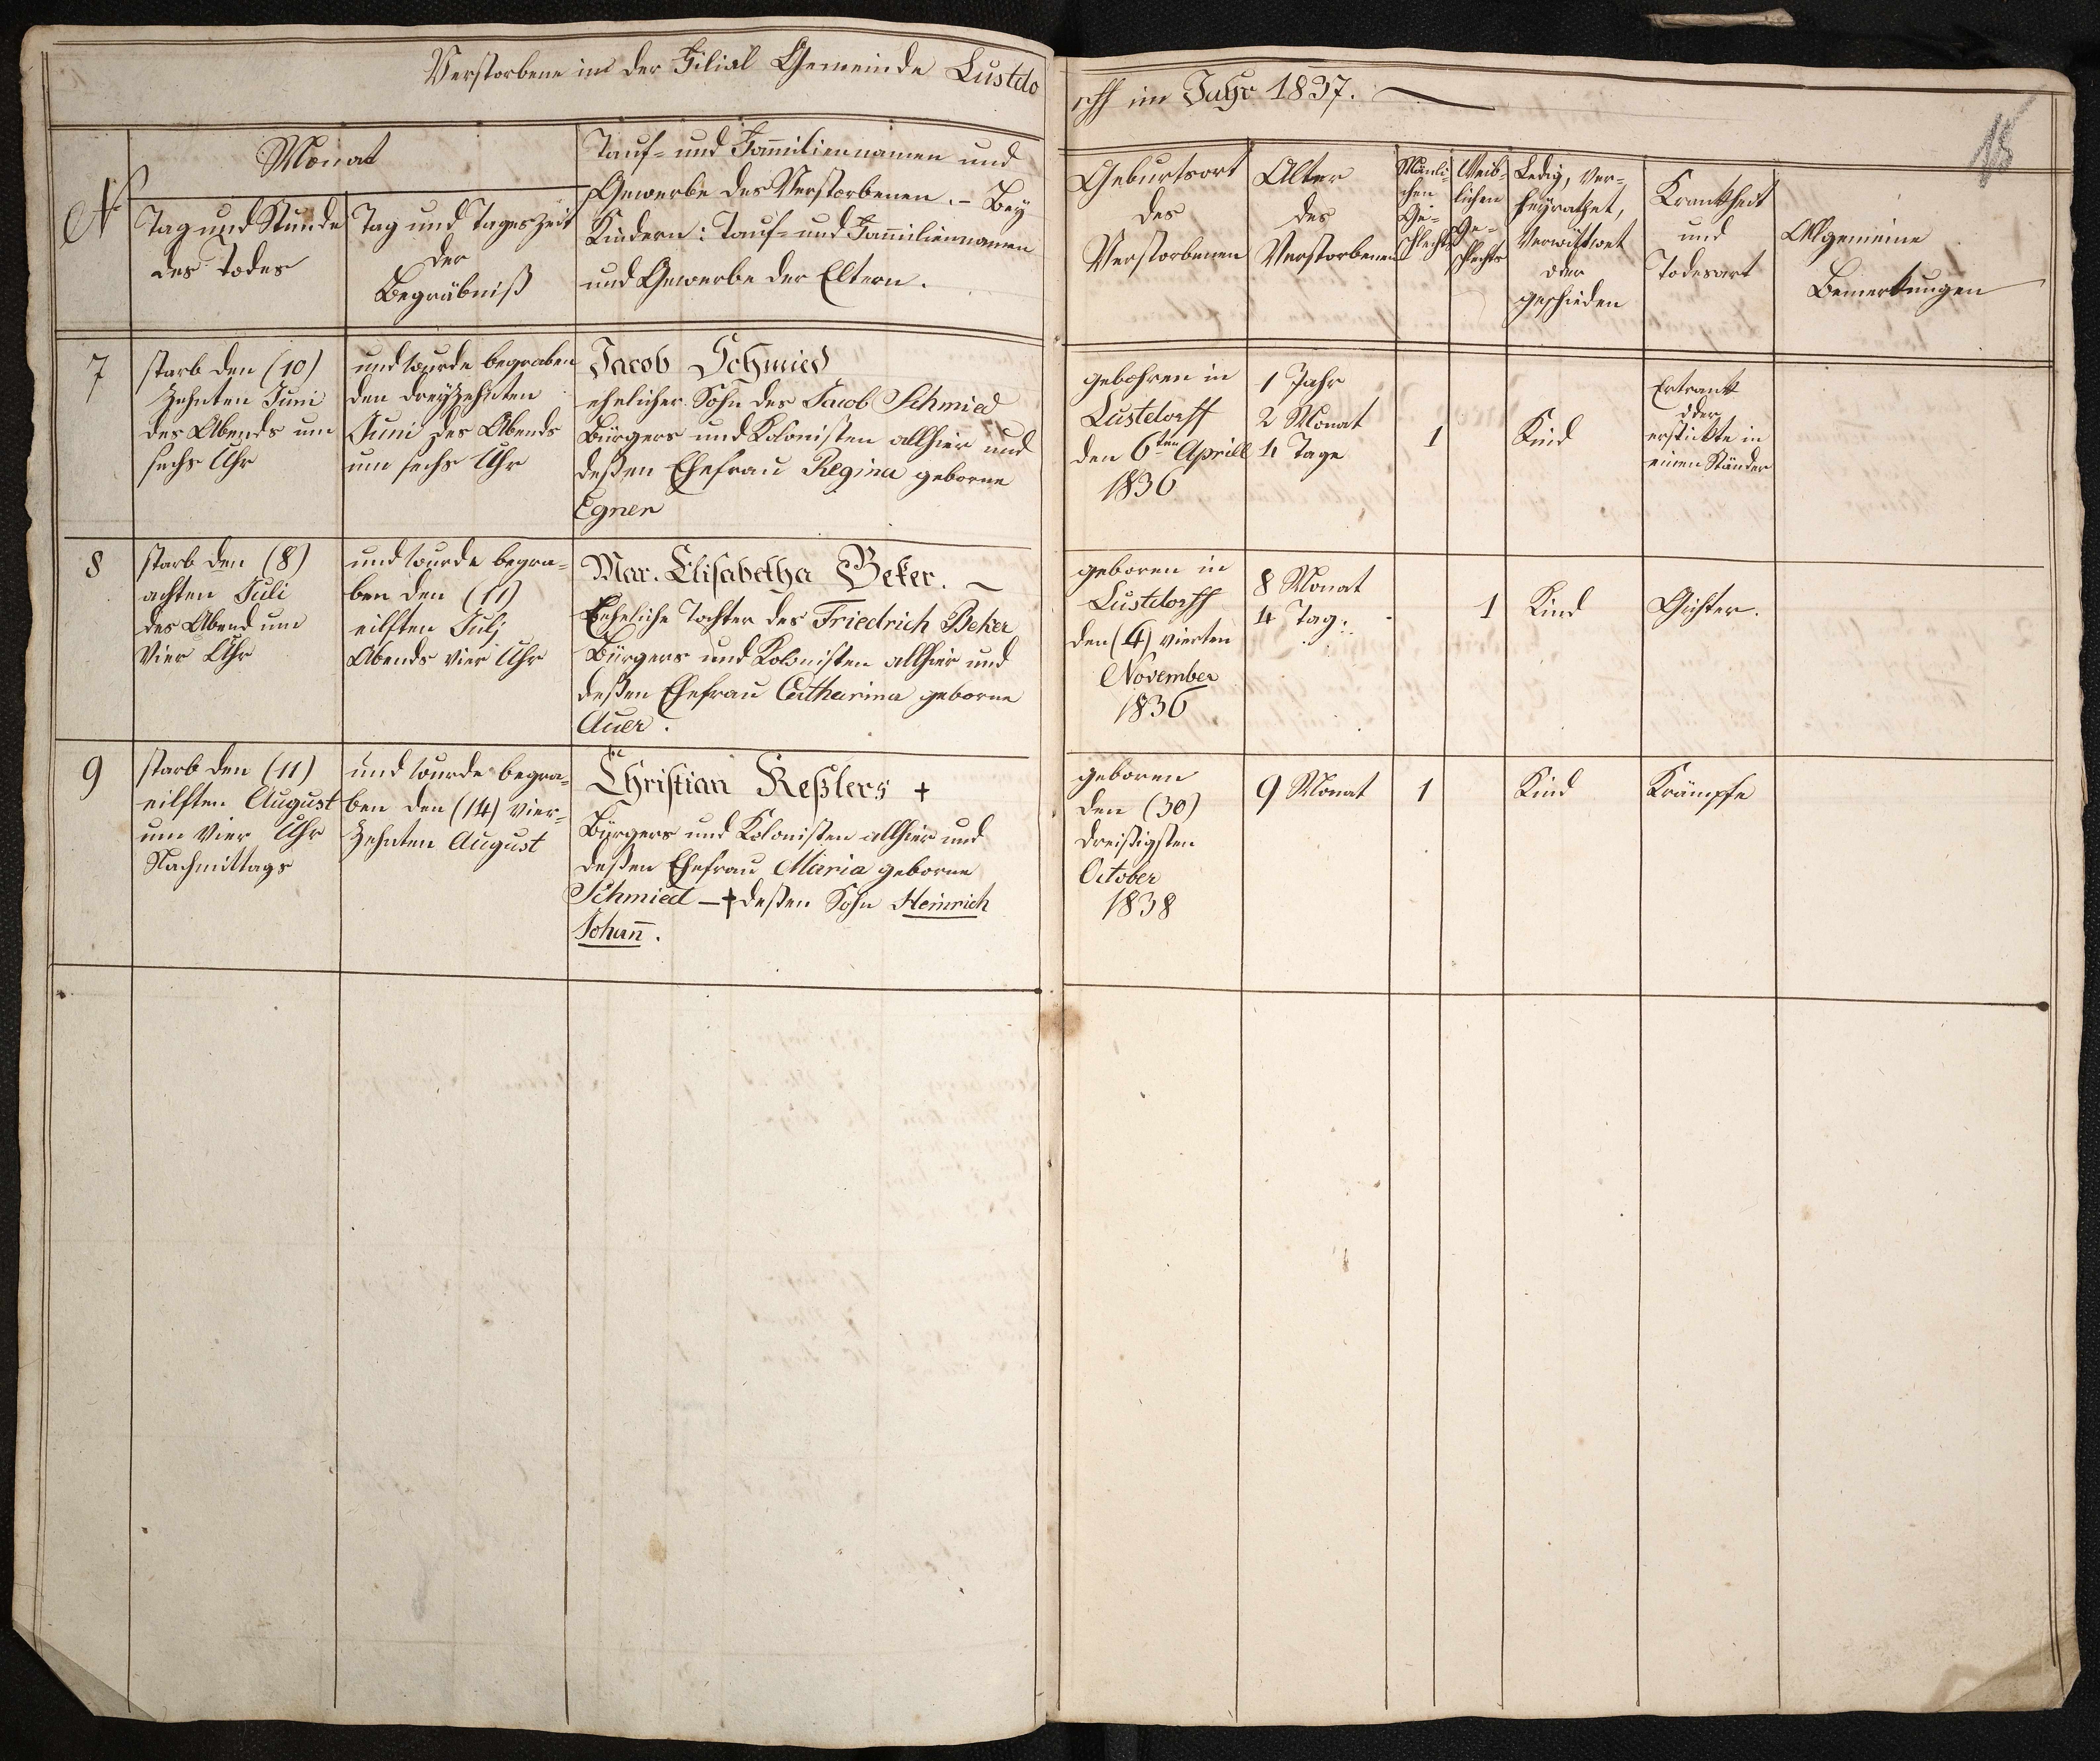 Verstorbene in der Filial Gemeinde Lustdo
rff im Jahr 1837.
15
N
Monat
Tag und Stunde
des Todes
Tag und Tageszeit
der
Begräbniß
Tauf- und Fam̅iliennamen und
Gewerbe des Verstorbenen. - Bey
Kindern: Tauf- und Fam̅iliennamen
und Gewerbe der Eltern.
Geburtsort
des
Verstorbenen
Alter
des
Verstorbenen
Mänli-
chen
Ge-
schlechts
Weib-
lichen
Ge-
schlechts
Ledig, Ver-
heyrathet,
Verwittwet
oder
geschieden
Krankheit
und
Todesart
Allgemeine
Bemerkungen
7
starb den (10)
zehnten Juni
des Abends um
sechs Uhr
und wurde begraben
den dreyzehnten
Juni des Abends
um sechs Uhr
Jacob Schmied
ehelicher Sohn des Jacob Schmied
Bürgers und Kolonisten allhier und
deßen Ehefrau Regina geborne
Egner
gebohren in
Lustdorff
den 6ten Aprill
1836
1 Jahr
2 Monat
4 Tage
1
Kind
Ertrank
oder
erstickte in
einen Ständer
8
starb den (8)
achten Juli
des Abend um
Vier Uhr
und wurde begra-
ben den (11)
eilften Julj
Abends vier Uhr
Mar. Elisabetha Beker.
Eheliche Tochter des Friedrich Beker
Bürgers und Kolonisten allhier und
deßen Ehefrau Catharina geborne
Auer.
geboren in
Lustdorff
den (4) vierten
November
1836
8 Monat
4 Tag.
1
Kind
Gichter.
9
starb den (11)
eilften August
um Vier Uhr
Nachmittags
und wurde begra-
ben den (14) vier-
zehnten August
Christian Keßlers +
Bürgers und Kolonisten allhier und
deßen Ehefrau Maria geborne
Schmied - + deßen Sohn Heinrich
Johan̅.
geboren
den (30)
dreißigsten
October
1838
9 Monat
1
Kind
Krämpfe